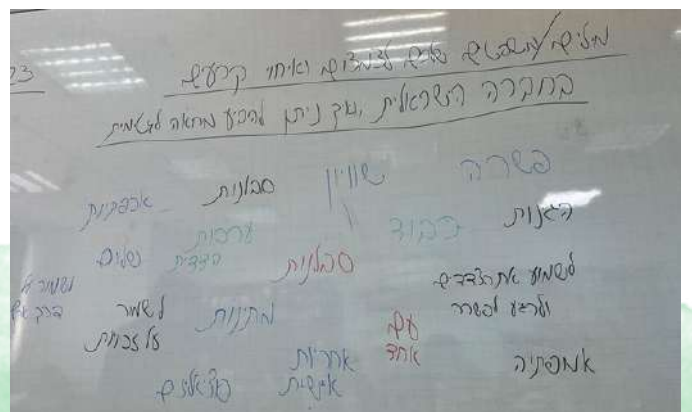 23
מילים/משפטים שלנו לצמצום ואיחוי קרעים
בחברה הישראלית, איך ניתן להביע מחאה לגיטימית
פשרה
שוויון
סבלנות
אכפתיות
הגינות
כבוד
ערבות
הדדית
סבלנות
לשמוע את הצדדים
ולהגיע לפשרה
לשמור
על זכויות
מתינות
עם
אחד
אמפתיה
אחריות
אישית